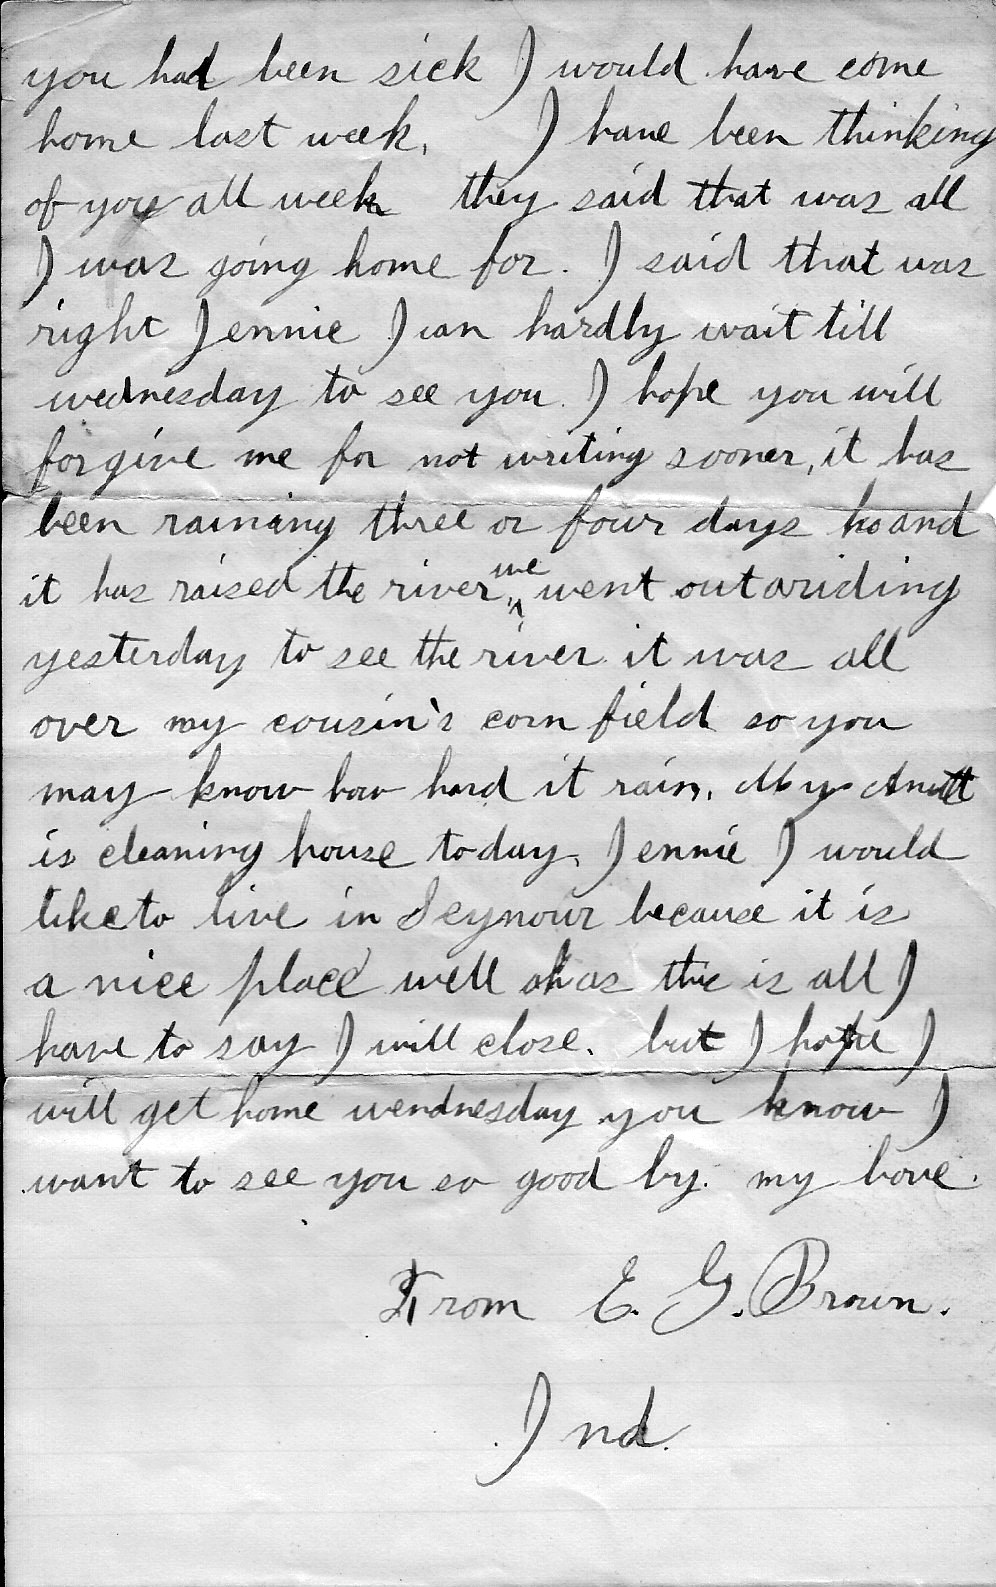 you had been sick I would have come
home last week. I have been thinking
of you all week they said that was all
I was going home for. I said that was
right Jennie I can hardly wait till
wednesday to see you. I hope you will
forgive me for not writing sooner, it has
been raining three or four days and
it has raised the river, we went out a riding
yesterday to see the river it was all
over my cousin's corn field so you
may know how hard it rain. My Aunt
is cleaning house today. Jennie I would
like to live in Seymour because it is
a nice place well as this is all I
have to say I will close. but I hope I
will get home wendnesday you know I
want to see you so good by. my love.
From E. G. Brown.
Ind.